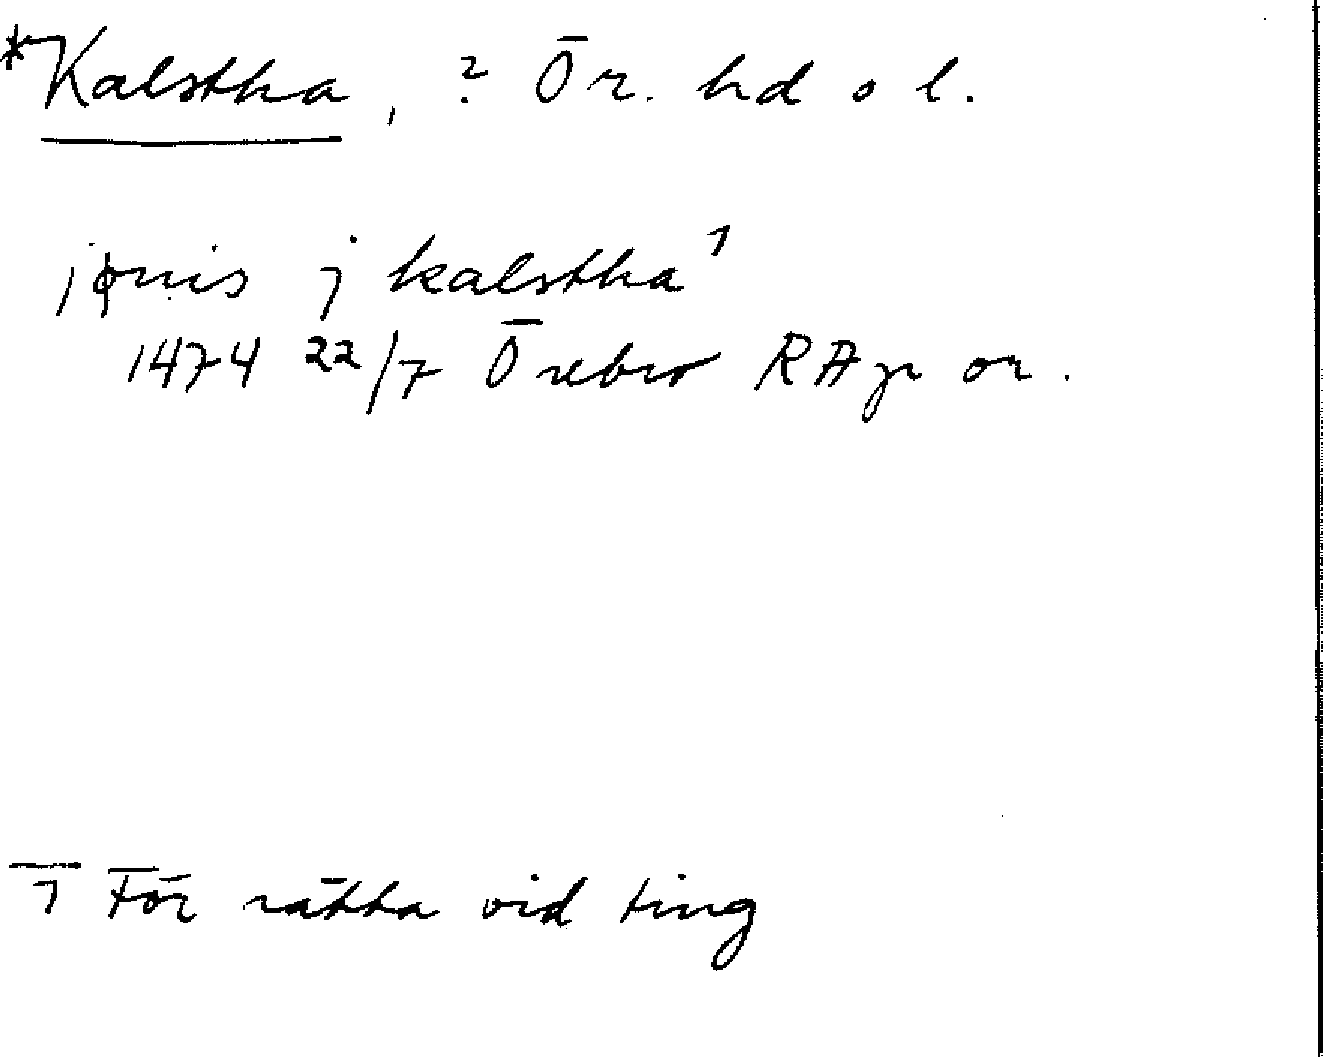 *Kalstha, ? Ör. hd o l.
jønis j kalstha¹
1474 22/7 Örebro RAp or.
1 För rätta vid ting